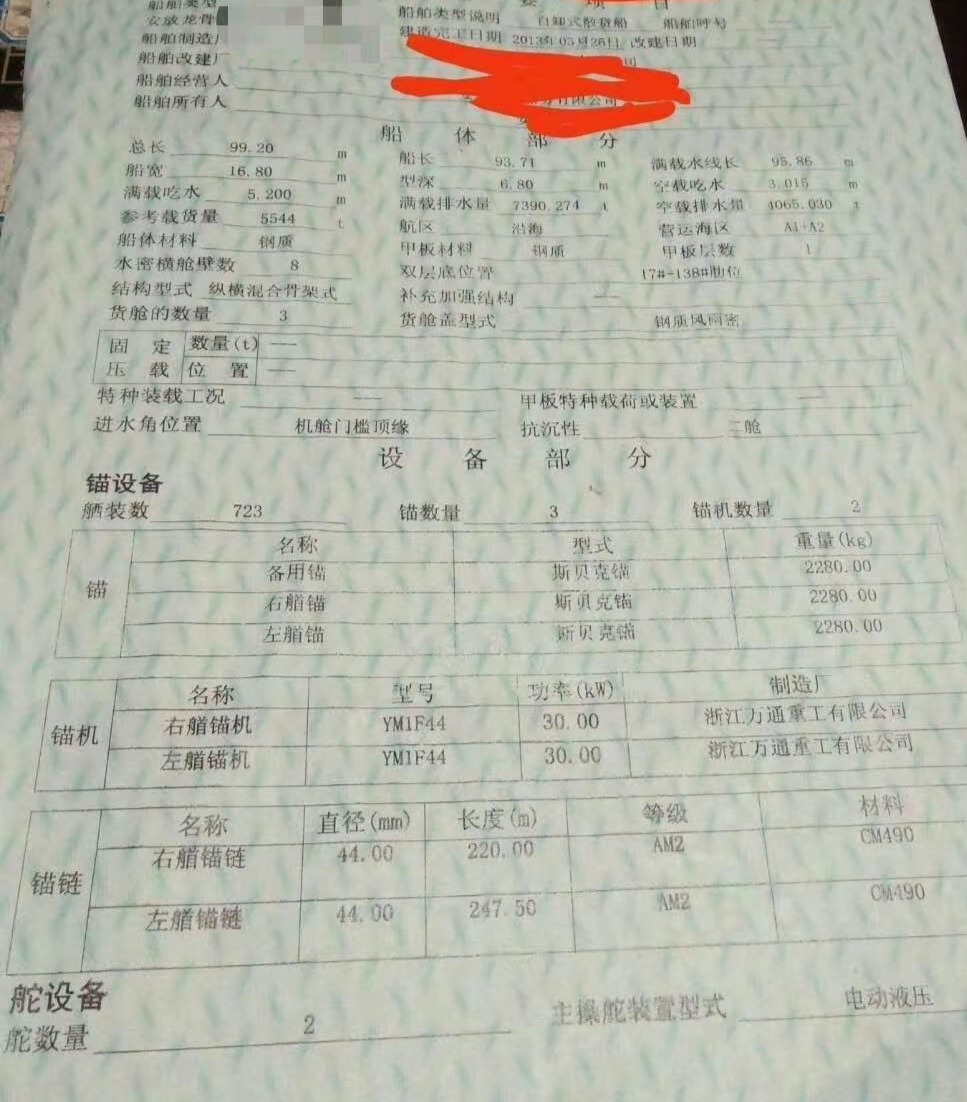 要 项 目
船舶类型
船舶类型说明 自卸式散货船 船舶呼号
安放龙骨
建造完工日期 2013年05月26日 改建日期
船舶制造厂
船舶改建厂 司
船舶经营人
船舶所有人 有限公司
船 体 部 分
总长 99.20 m 船长 93.71 m 满载水线长 95.86 m
船宽 16.80 m 型深 6.80 m 空载吃水 3.015 m
满载吃水 5.200 m 满载排水量 7390.274 t 空载排水量 4065.030 t
参考载货量 5544 t 航区 沿海 营运海区 A1+A2
船体材料 钢质 甲板材料 钢质 甲板层数 1
水密横舱壁数 8 双层底位置 17#-138#肋位
结构型式 纵横混合骨架式 补充加强结构 ——
货舱的数量 3 货舱盖型式 钢质风雨密
固定压载 数量(t) ——
位置 ——
特种装载工况 —— 甲板特种载荷或装置
进水角位置 机舱门槛顶缘 抗沉性 二舱
设 备 部 分
锚设备
舾装数 723 锚数量 3 锚机数量 2
锚 名称 型式 重量(kg)
备用锚 斯贝克锚 2280.00
右艏锚 斯贝克锚 2280.00
左艏锚 斯贝克锚 2280.00
锚机 名称 型号 功率(kW) 制造厂
右艏锚机 YM1F44 30.00 浙江万通重工有限公司
左艏锚机 YM1F44 30.00 浙江万通重工有限公司
锚链 名称 直径(mm) 长度(m) 等级 材料
右艏锚链 44.00 220.00 AM2 CM490
左艏锚链 44.00 247.50 AM2 CM490
舵设备
舵数量 2 主操舵装置型式 电动液压